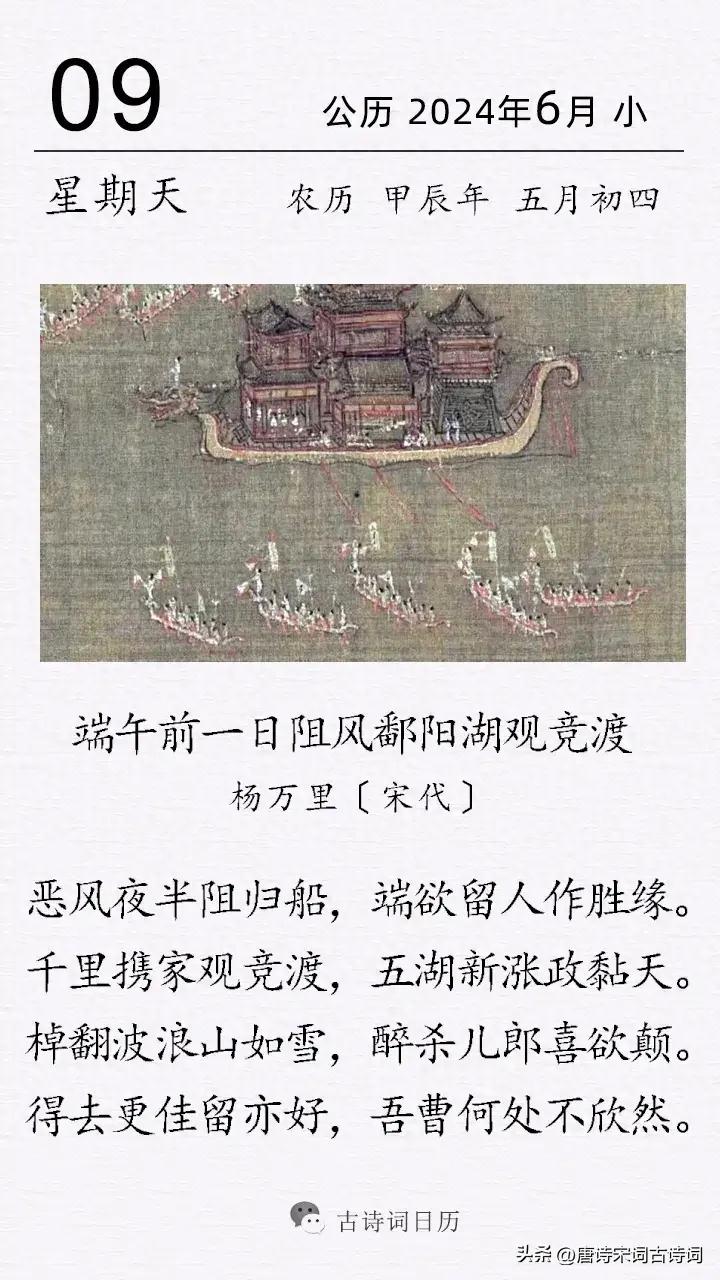 09
公历 2024年6月 小
星期天 农历 甲辰年 五月初四
端午前一日阻风鄱阳湖观竞渡
杨万里〔宋代〕
恶风夜半阻归船，端欲留人作胜缘。
千里携家观竞渡，五湖新涨政黏天。
棹翻波浪山如雪，醉杀儿郎喜欲颠。
得去更佳留亦好，吾曹何处不欣然。
古诗词日历
头条 @唐诗宋词古诗词